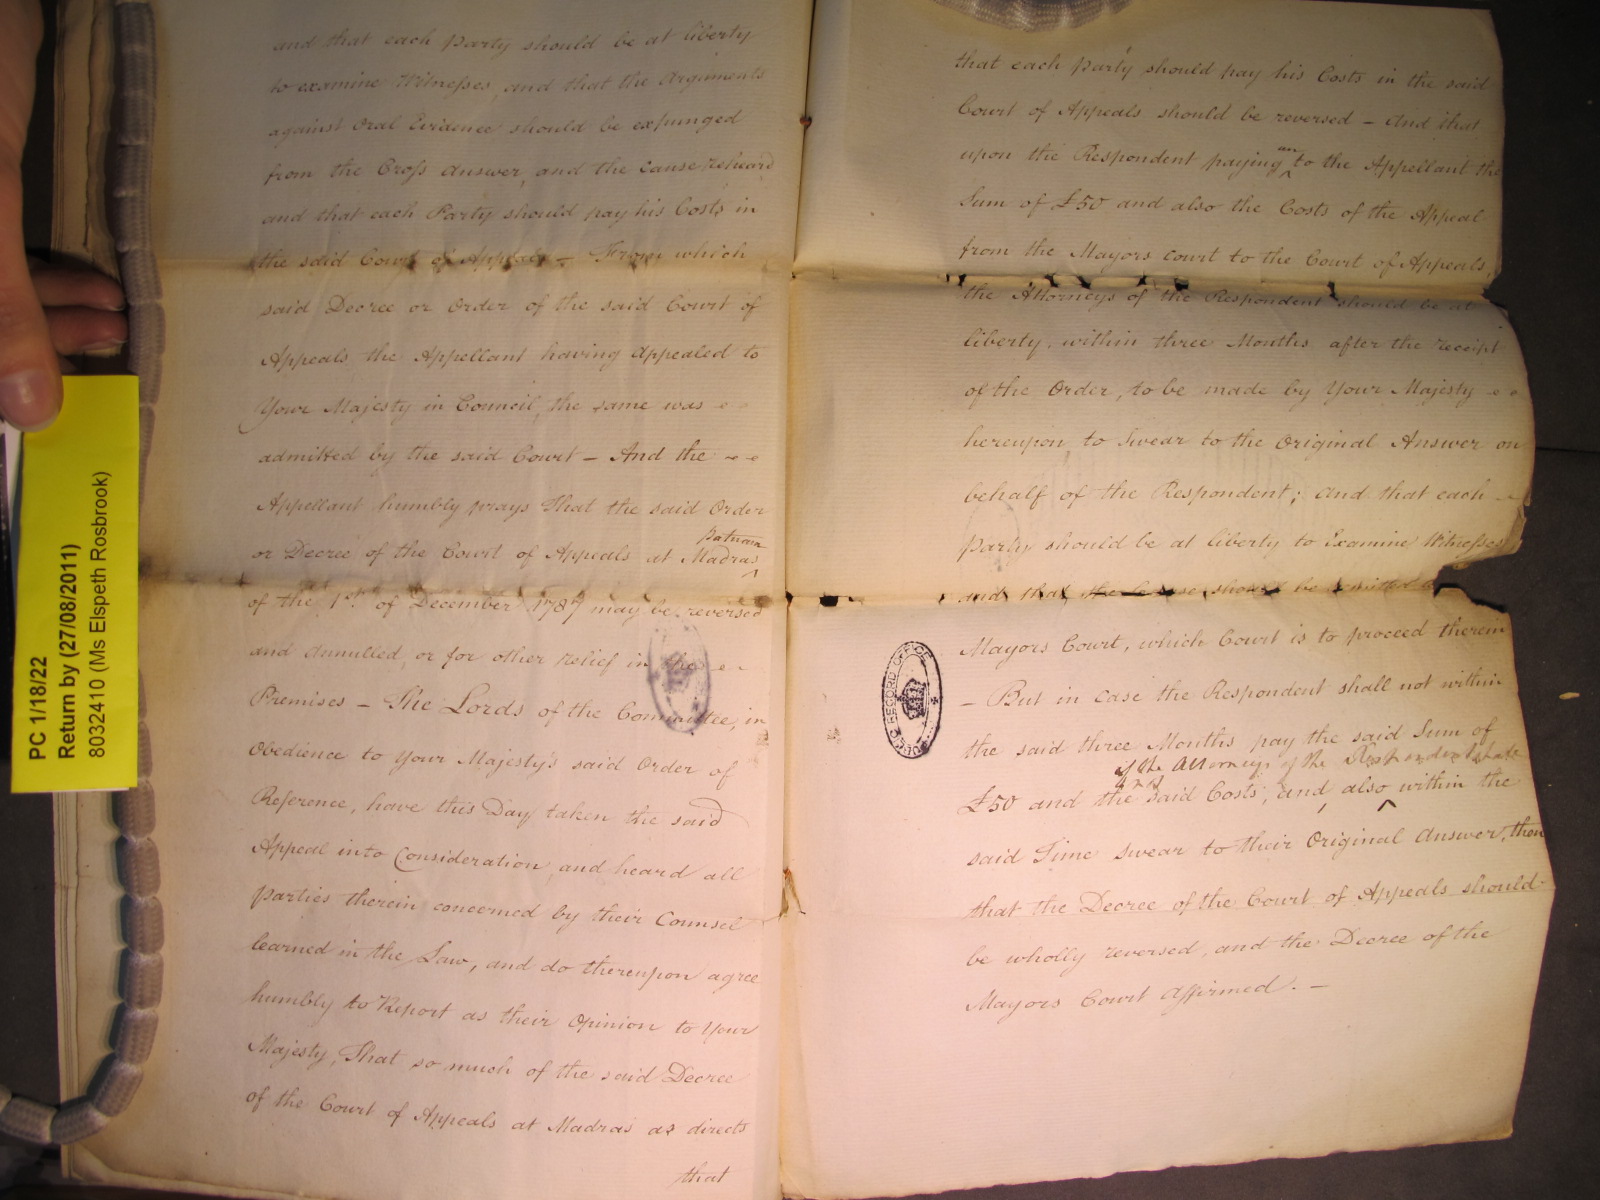 and that each Party should be at liberty
to examine Witnesses, and that the Arguments
against Oral Evidence should be expunged
from the Cross Answer, and the cause reheard
and that each Party should pay his Costs in
the said Court of Appeals – From which
said Decree or Order of the said Court of
Appeals the Appellant having Appealed to
Your Majesty in Council, the same was
admitted by the said Court – And the
Appellant humbly prays That the said Order
or Decree of the Court of Appeals at Madras
of the 1st. of December 1787 may be reversed
and annulled, or for other relief in the
Premises – The Lords of the Committee, in
Obedience to Your Majesty's said Order of
Reference, have this Day taken the said
Appeal into Consideration, and heard all
Parties therein concerned by their Counsel
learned in the Law, and do thereupon agree
humbly to Report as their Opinion to Your
Majesty, That so much of the said Decree
of the Court of Appeals at Madras as directs
that
that each Party should pay his Costs in the said
Court of Appeals should be reversed – And that
upon the Respondent paying to the Appellant the
Sum of £50 and also the Costs of the Appeal
from the Mayors court to the Court of Appeals,
the Attorneys of the Respondent should be at
liberty, within three Months after the receipt
of the Order, to be made by Your Majesty
hereupon to Swear to the Original Answer on
behalf of the Respondent; and that each
Party should be at liberty to Examine Witnesses
and that the Cause should be remitted to
Mayors Court, which Court is to proceed therein
– But in case the Respondent shall not within
the said three Months pay the said Sum of
if the Attorneys of the Respondent shall
£50 and the said Costs, and, also within the
said Time swear to their Original Answer, then
that the Decree of the Court of Appeals should
be wholly reversed, and the Decree of the
Mayors Court Affirmed. –
PUBLIC RECORD OFFICE
PC 1/18/22
Return by (27/08/2011)
8032410 (Ms Elspeth Rosbrook)